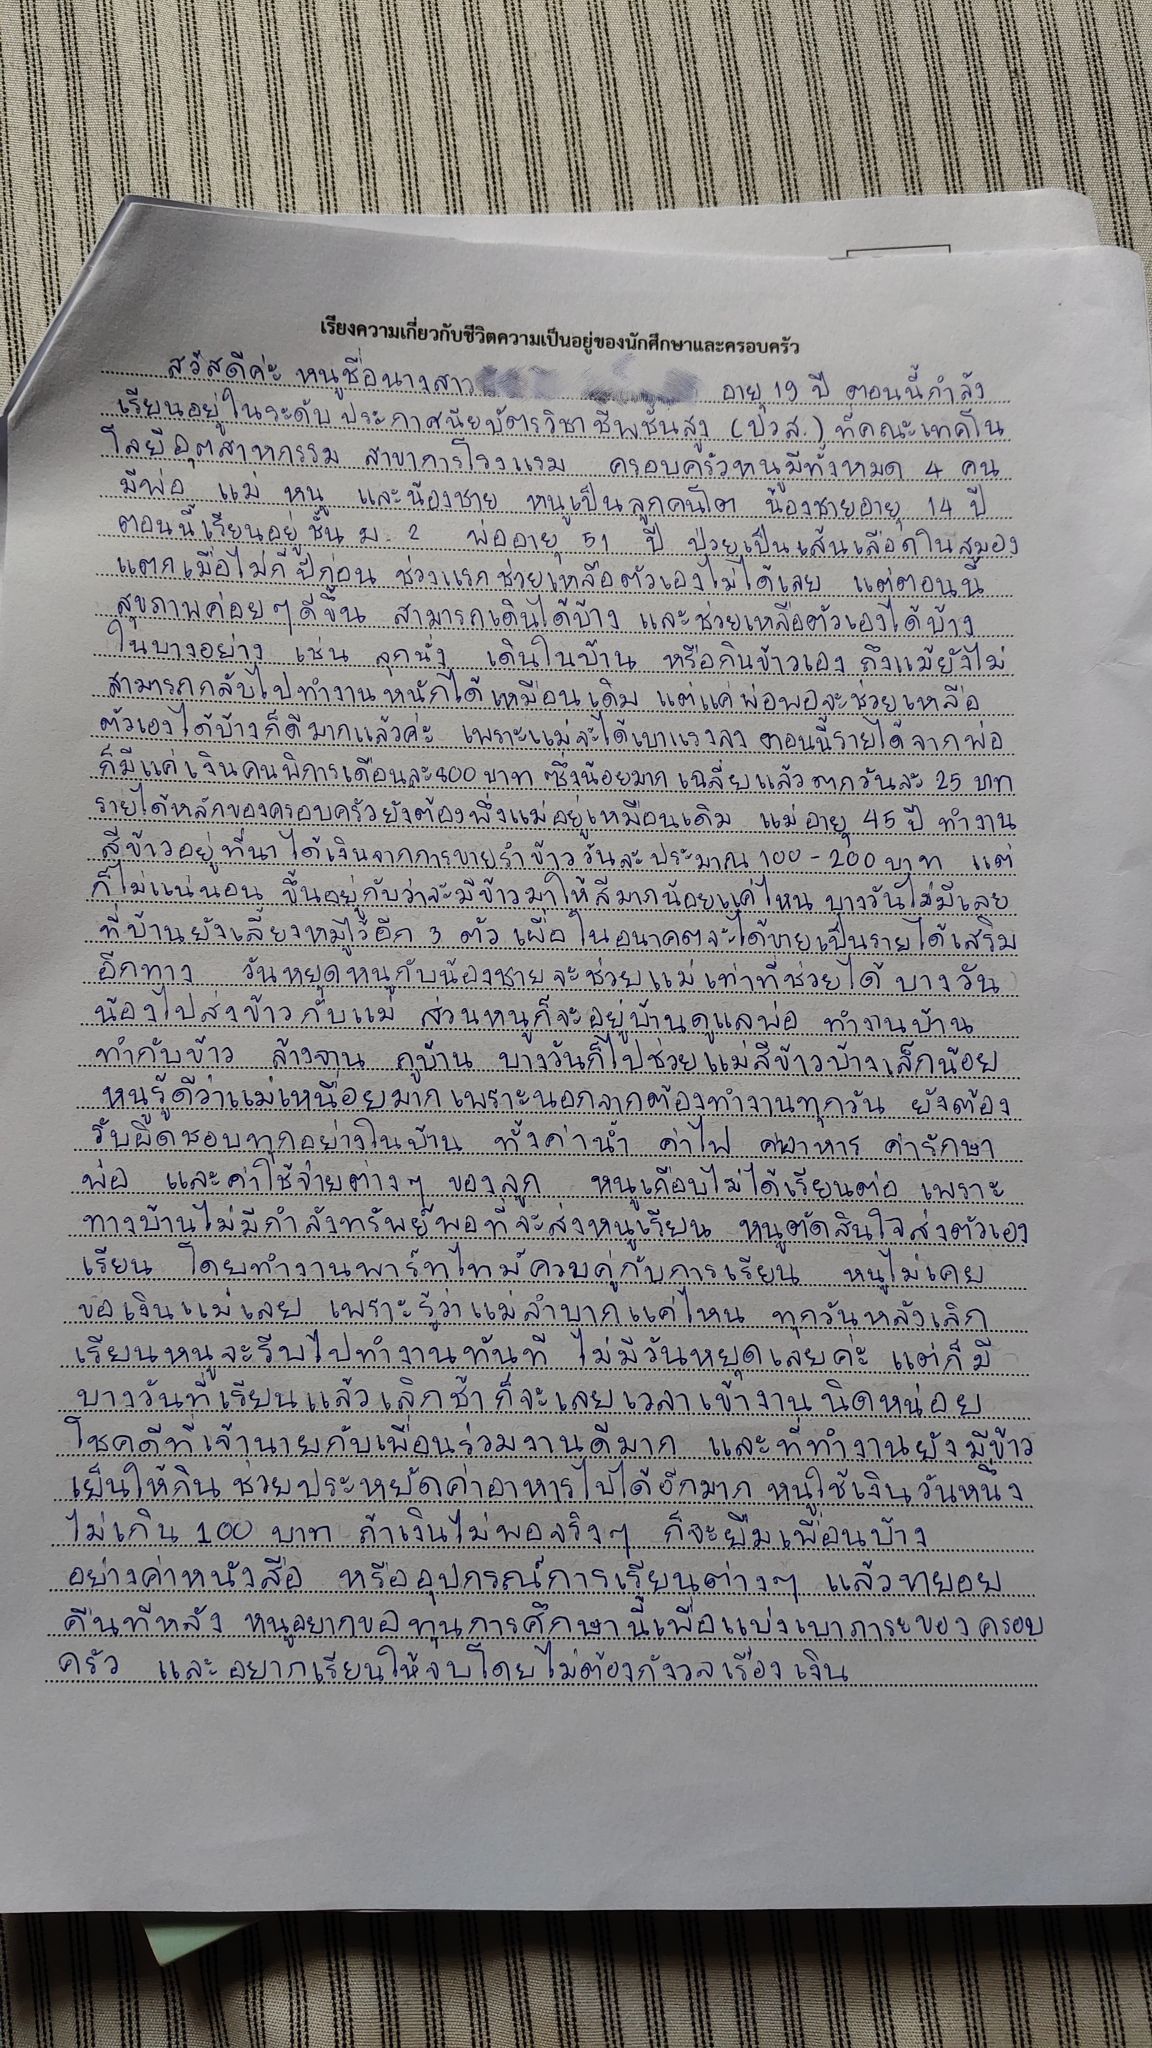 เรียงความเกี่ยวกับชีวิตความเป็นอยู่ของนักศึกษาและครอบครัว
สวัสดีค่ะ หนูชื่อนางสาว อายุ 19 ปี ตอนนี้กำลัง
เรียนอยู่ในระดับประกาศนียบัตรวิชาชีพชั้นสูง (ปวส.) ที่คณะเทคโน
โลยีอุตสาหกรรม สาขาการโรงแรม ครอบครัวหนูมีทั้งหมด 4 คน
มีพ่อ แม่ หนู และน้องชาย หนูเป็นลูกคนโต น้องชายอายุ 14 ปี
ตอนนี้เรียนอยู่ชั้น ม. 2 พ่ออายุ 51 ปี ป่วยเป็นเส้นเลือดในสมอง
แตกเมื่อไม่กี่ปีก่อน ช่วงแรกช่วยเหลือตัวเองไม่ได้เลย แต่ตอนนี้
สุขภาพค่อยๆดีขึ้น สามารถเดินได้บ้าง และช่วยเหลือตัวเองได้บ้าง
ในบางอย่าง เช่น ลุกนั่ง เดินในบ้าน หรือกินข้าวเอง ถึงแม้ยังไม่
สามารถกลับไปทำงานหนักได้เหมือนเดิม แต่แค่พ่อพอจะช่วยเหลือ
ตัวเองได้บ้างก็ดีมากแล้วค่ะ เพราะแม่จะได้เบาแรงลง ตอนนี้รายได้จากพ่อ
ก็มีแค่เงินคนพิการเดือนละ 800 บาท ซึ่งน้อยมาก เฉลี่ยแล้วตกวันละ 25 บาท
รายได้หลักของครอบครัวยังต้องพึ่งแม่อยู่เหมือนเดิม แม่อายุ 45 ปี ทำงาน
สีข้าวอยู่ที่นา ได้เงินจากการขายรำข้าว วันละประมาณ 100 - 200 บาท แต่
ก็ไม่แน่นอน ขึ้นอยู่กับว่าจะมีข้าวมาให้สีมากน้อยแค่ไหน บางวันไม่มีเลย
ที่บ้านยังเลี้ยงหมูไว้อีก 3 ตัว เผื่อในอนาคตจะได้ขายเป็นรายได้เสริม
อีกทาง วันหยุดหนูกับน้องชายจะช่วยแม่เท่าที่ช่วยได้ บางวัน
น้องไปส่งข้าวกับแม่ ส่วนหนูก็จะอยู่บ้านดูแลพ่อ ทำงานบ้าน
ทำกับข้าว ล้างจาน ถูบ้าน บางวันก็ไปช่วยแม่สีข้าวบ้างเล็กน้อย
หนูรู้ดีว่าแม่เหนื่อยมาก เพราะนอกจากต้องทำงานทุกวัน ยังต้อง
รับผิดชอบทุกอย่างในบ้าน ทั้งค่าน้ำ ค่าไฟ ค่าอาหาร ค่ารักษา
พ่อ และค่าใช้จ่ายต่างๆ ของลูก หนูเกือบไม่ได้เรียนต่อ เพราะ
ทางบ้านไม่มีกำลังทรัพย์พอที่จะส่งหนูเรียน หนูตัดสินใจส่งตัวเอง
เรียน โดยทำงานพาร์ทไทม์ควบคู่กับการเรียน หนูไม่เคย
ขอเงินแม่เลย เพราะรู้ว่าแม่ลำบากแค่ไหน ทุกวันหลังเลิก
เรียนหนูจะรีบไปทำงานทันที ไม่มีวันหยุดเลยค่ะ แต่ก็มี
บางวันที่เรียนแล้วเลิกช้า ก็จะเลยเวลาเข้างานนิดหน่อย
โชคดีที่เจ้านายกับเพื่อนร่วมงานดีมาก และที่ทำงานยังมีข้าว
เย็นให้กิน ช่วยประหยัดค่าอาหารไปได้อีกมาก หนูใช้เงินวันหนึ่ง
ไม่เกิน 100 บาท ถ้าเงินไม่พอจริงๆ ก็จะยืมเพื่อนบ้าง
อย่างค่าหนังสือ หรืออุปกรณ์การเรียนต่างๆ แล้วทยอย
คืนทีหลัง หนูอยากขอทุนการศึกษานี้เพื่อแบ่งเบาภาระของครอบ
ครัว และอยากเรียนให้จบโดยไม่ต้องกังวลเรื่องเงิน